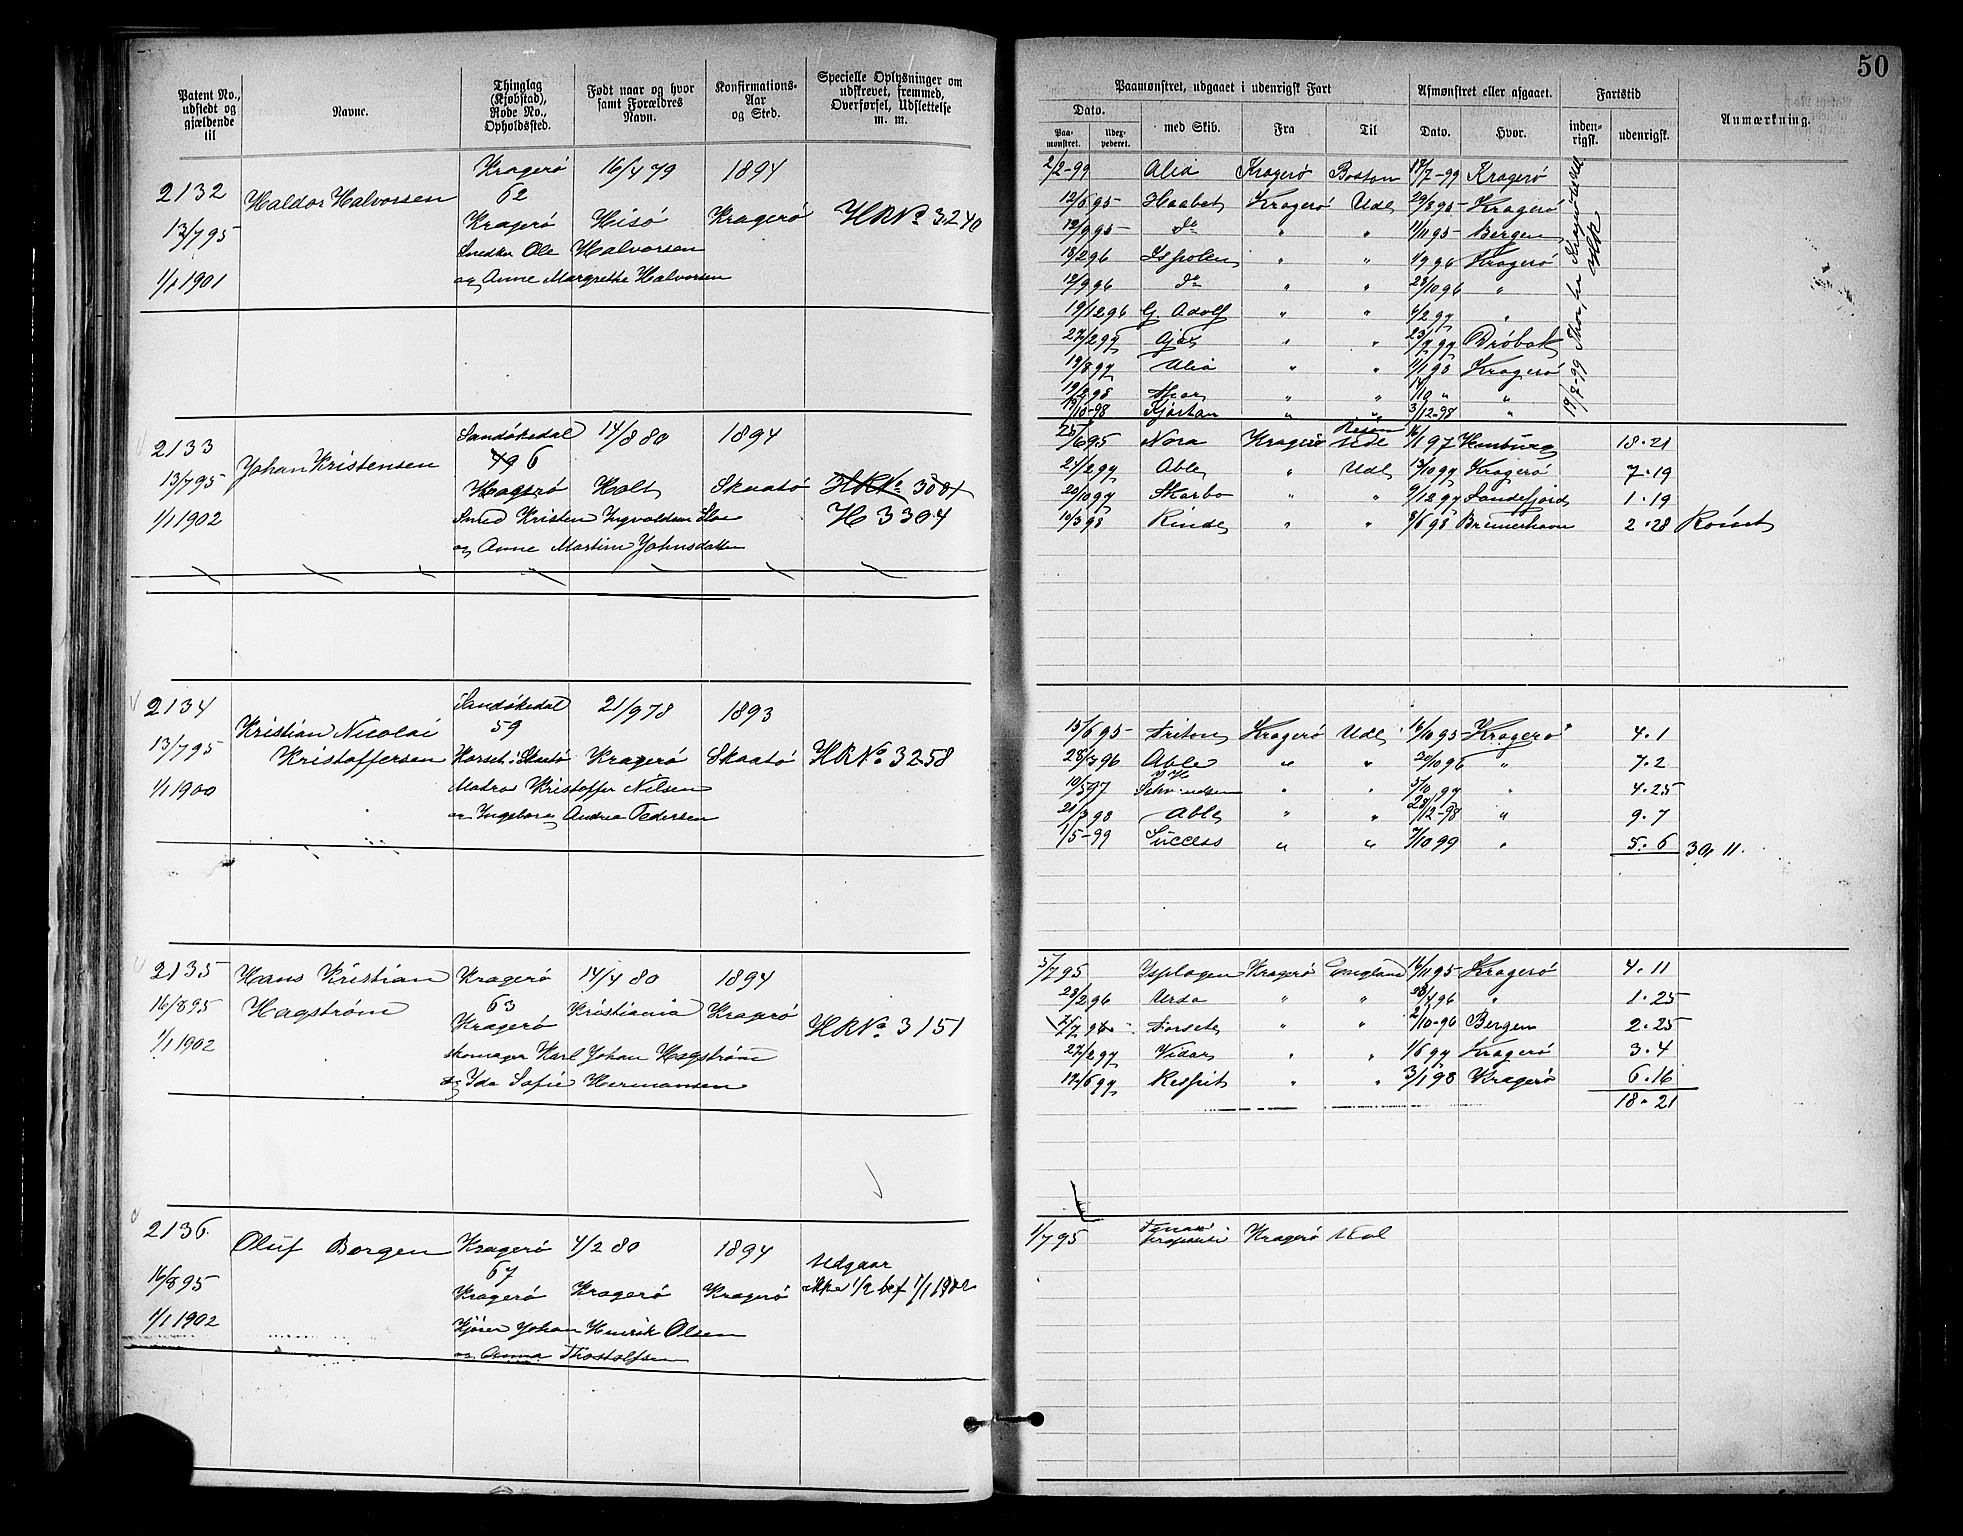 50
Patent No., udstedt og gjældende til
Navne.
Thinglag (Kjøbstad), Rode No., Opholdssted.
Født naar og hvor samt Forældres Navn.
Konfirmations-Aar og Sted.
Specielle Oplysninger om udskrevet, fremmed, Overførsel, Udslettelse m. m.
Paamønstret, udgaaet i udenrigsk Fart
Afmønstret eller afgaaet.
Fartstid
Anmærkning.
Dato.
med Skib.
Fra
Til
Dato.
Hvor.
inden-rigsk.
udenrigsk.
Paa-mønstret.
Udex-pederet.
2132 Haldor Halvorsen Kragerø 16/4 79 1894
62
13/7 95 Kragerø Hisø Kragerø HRNo 3240
Snedker Ole Halvorsen
1/1 1901 og Anne Margrethe Halvorsen
2/2-99 Alid Kragerø Boston 17/7-99 Kragerø
12/6 95 Haabet Kragerø Udl 29/8 95 Kragerø
12/9 95 do " " 1/11 95 Bergen
18/2 96 Ispolen " " 1/9 96 Kragerø
12/9 96 do " " 28/10 96 "
19/12 96 G. Adolf " " 4/2 97 "
27/2 97 Ajax " " 23/7 97 Drøbak
19/8 97 Alid " " 1/1 98 Kragerø
19/4 98 Thor " " 14/10 " "
19/10-98 Kjartan " " 3/12-98 "
19/7-99
2133 Johan Kristensen Sandøkedal 14/8 80 1894
49 6
13/7 95 Kragerø Holt Skaatø HRNo 3081
1/1 1902 Smed Kristen Ingvaldsen H 3304
og Anne Martine Johnsdatter
25/6 95 Nora Kragerø Udl 16/1 97 Hamburg 18.21
24/2 97 Able " Udl 13/10 97 Kragerø 7.19
20/10 97 Skarbo " " 9/12 97 Sandefjord 1.19
10/3 98 Rinde " " 8/6 98 Bremerhavn 2.28
2134 Kristian Nicolai Sandøkedal 21/9 78 1893
59
13/7 95 Kristoffersen Skaatø Kragerø Skaatø HRNo 3258
1/1 1900 Matros Kristoffer Nilsen
og Ingeborg Andrea Pedersen
13/6 95 Triton Kragerø Udl 16/10 95 Kragerø 4.1
28/3 96 Able " " 30/10 96 " 7.2
10/5 97 " " 5/10 97 " 4.25
21/3 98 Able " " 28/12-98 " 9.7
1/5-99 Success " " 7/10 99 " 5.6 30, 11.
2135 Hans Kristian Kragerø 14/4 80 1894
16/8 95 Hagstrøm 63 Kristiania Kragerø
Kragerø HRNo 3151
1/1 1902 skomager Karl Johan Hagstrøm
og Ida Sofie Hermansen
5/7 95 Isplogen Kragerø England 16/11 95 Kragerø 4.11
28/2 96 Ursa " " 23/4 96 " 1.25
7/7 96 Forsete " " 2/10-96 Bergen 2.25
27/2 97 Vidar " " 1/6 97 Kragerø 3.4
17/6 97 Respit " " 3/1 98 Kragerø 6.16
18.21
2136 Oluf Borgen Kragerø 4/2 80 1894
67 Udgaar
16/8 95 Kragerø Kragerø Kragerø ikke 1/2 bef 1/1 1902
1/1 1902 Kjører Johan Henrik Olsen
og Anna Thostolfsen
1/7 95 Kragerø Udl